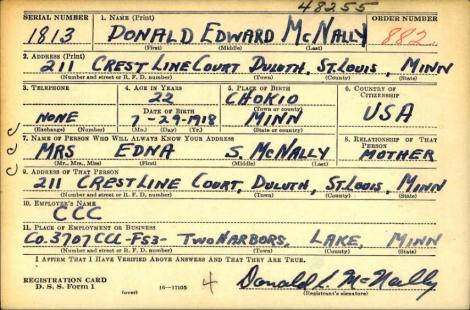 48255
SERIAL NUMBER 1. NAME (Print) ORDER NUMBER
1813 DONALD EDWARD MCNALLY 882
(First) (Middle) (Last)
2. ADDRESS (Print)
211 CRESTLINE COURT DULUTH, ST. LOUIS, MINN
(Number and street or R. F. D. number) (Town) (County) (State)
3. TELEPHONE 4. AGE IN YEARS 5. PLACE OF BIRTH 6. COUNTRY OF CITIZENSHIP
22 CHOKIO
DATE OF BIRTH (Town or county)
NONE 7-29-1918 MINN USA
(Exchange) (Number) (Mo.) (Day) (Yr.) (State or country)
7. NAME OF PERSON WHO WILL ALWAYS KNOW YOUR ADDRESS 8. RELATIONSHIP OF THAT PERSON
MRS EDNA S. MCNALLY MOTHER
(Mr., Mrs., Miss) (First) (Middle) (Last)
9. ADDRESS OF THAT PERSON
211 CRESTLINE COURT, DULUTH, ST. LOUIS, MINN
(Number and street or R. F. D. number) (Town) (County) (State)
10. EMPLOYER'S NAME
CCC
11. PLACE OF EMPLOYMENT OR BUSINESS
CO. 3707 CCC-F53- TWO HARBORS, LAKE, MINN
(Number and street or R. F. D. number) (Town) (County) (State)
I AFFIRM THAT I HAVE VERIFIED ABOVE ANSWERS AND THAT THEY ARE TRUE.
REGISTRATION CARD
D. S. S. Form 1 (over) 16-17105 4 Donald L. McNally
(Registrant's signature)